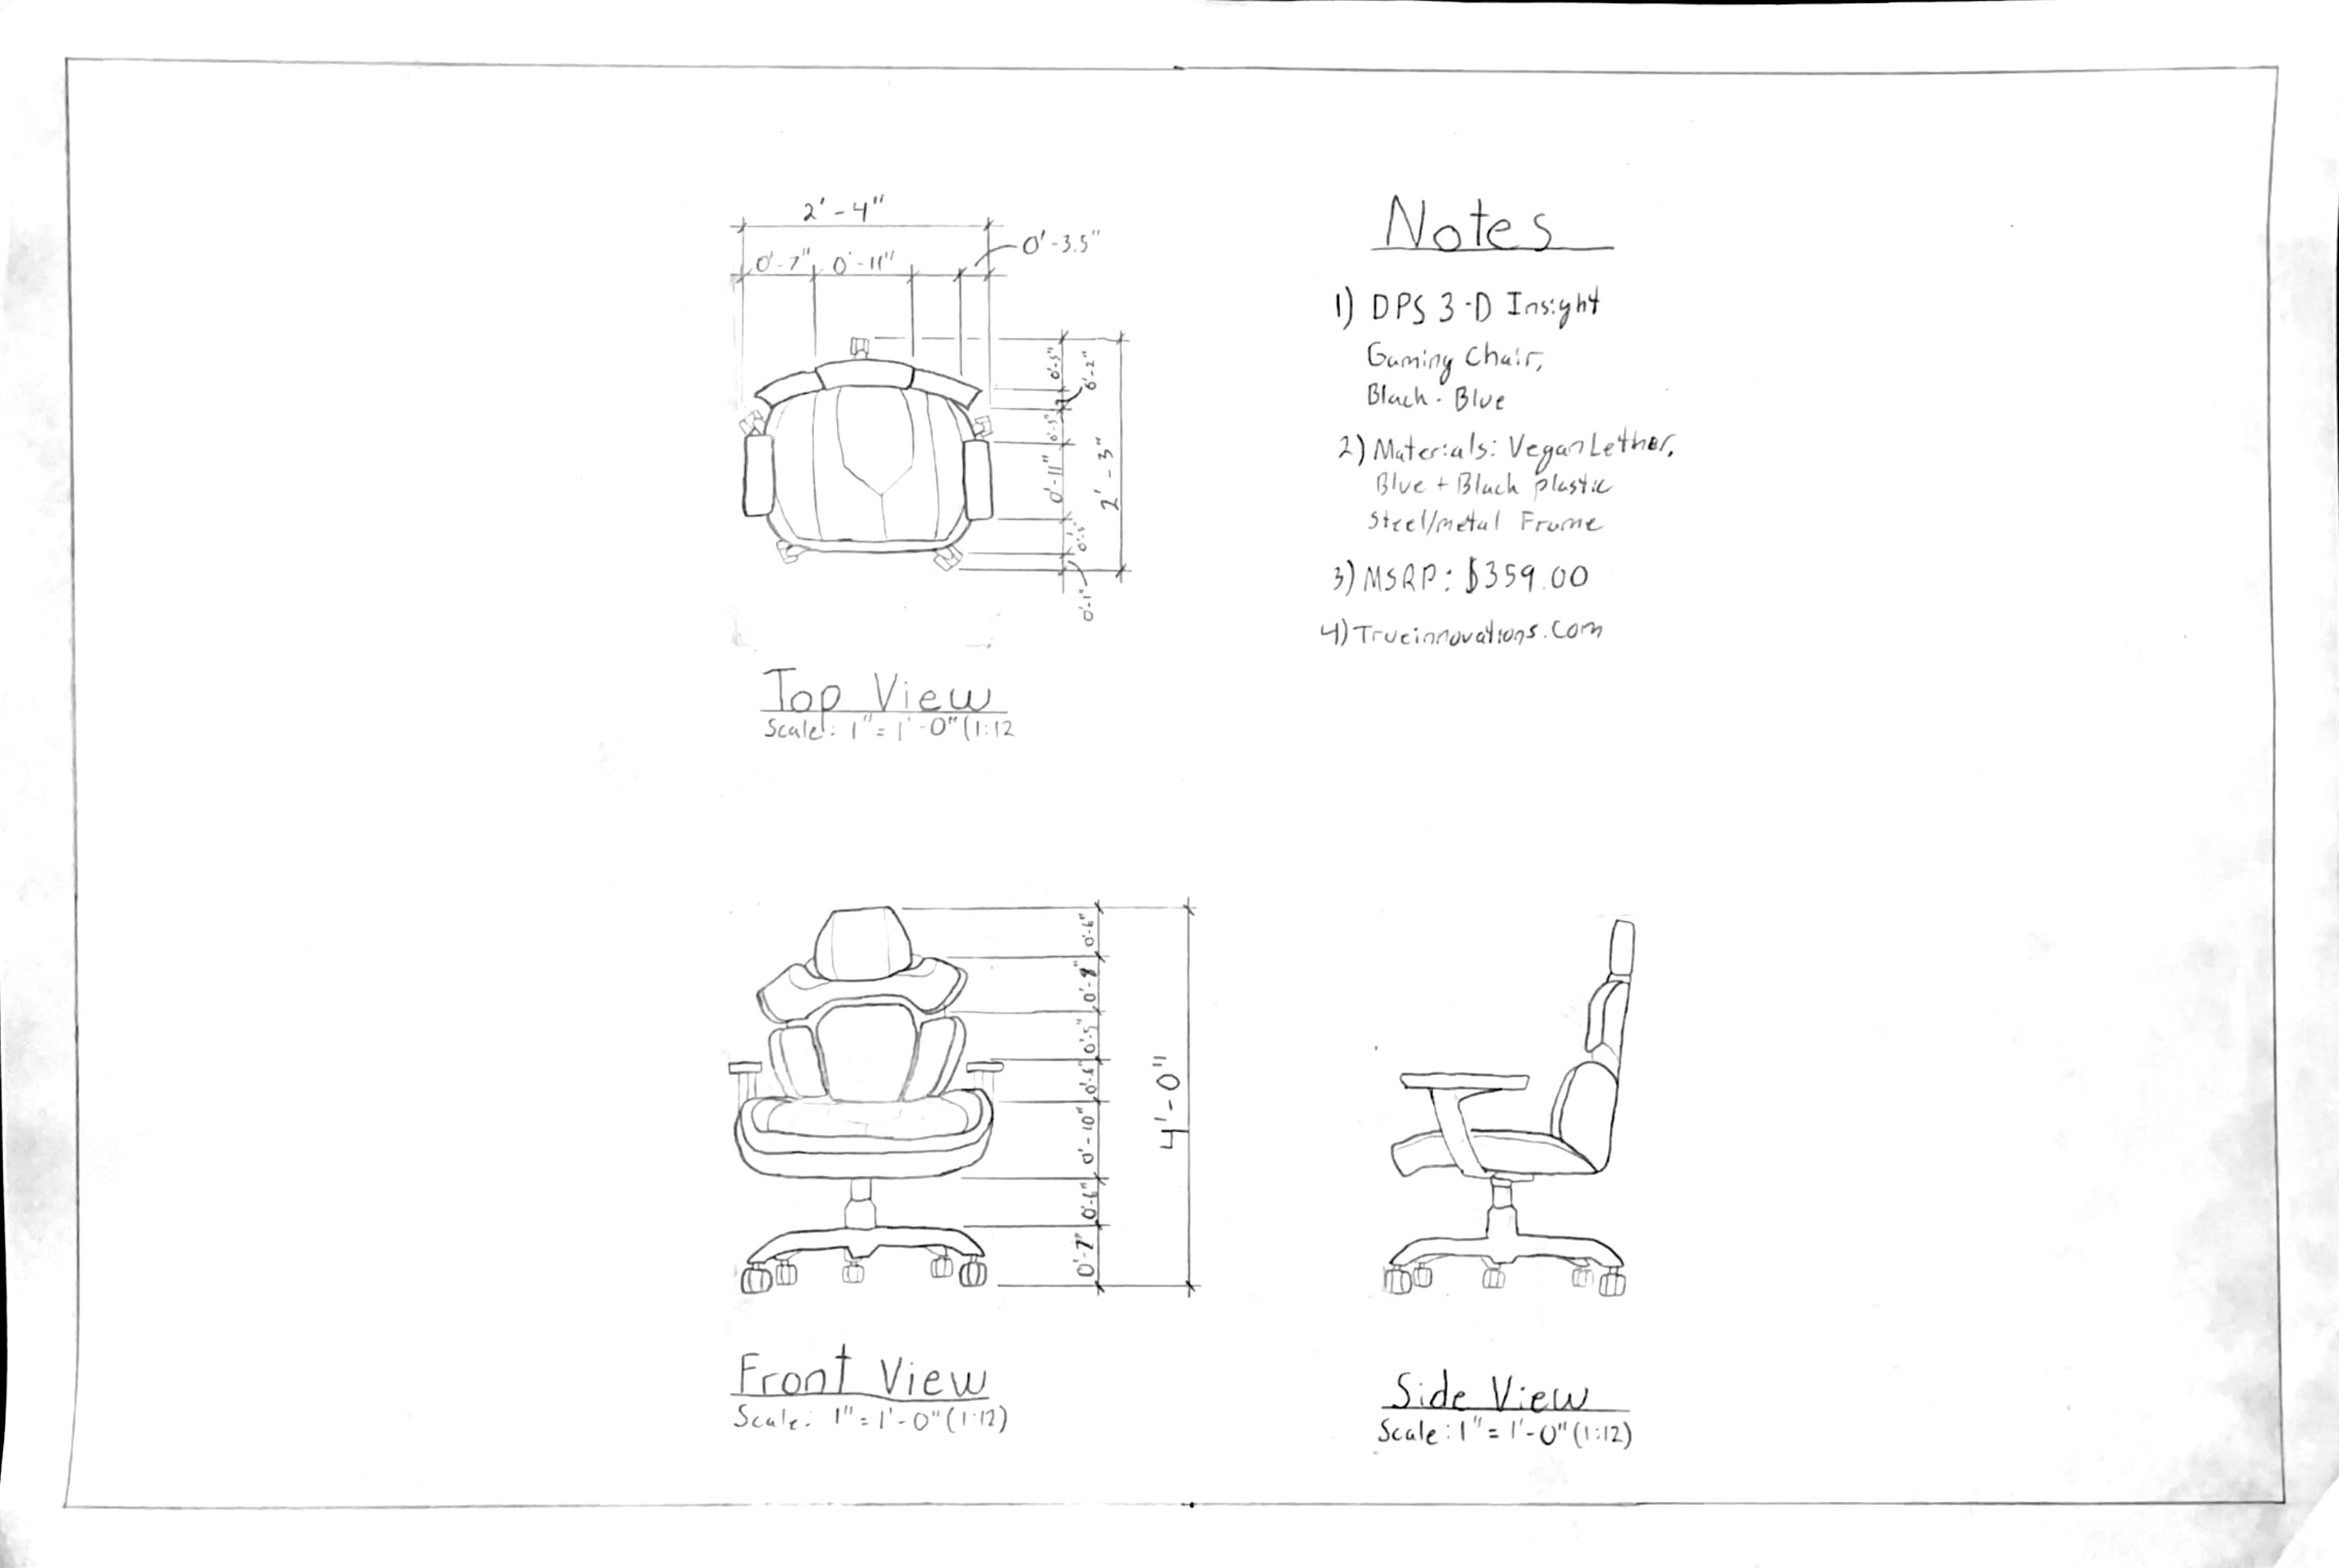 2' - 4"
0' - 3.5"
0' - 7" 0' - 11"
0'-5"
0'-2"
0'-5"
0' - 11"
2' - 3"
0'-5"
0'-1"
Top View
Scale: 1" = 1' - 0" (1:12
Notes
1) DPS 3-D Insight
Gaming Chair,
Black - Blue
2) Materials: Vegan Lether,
Blue + Black plastic
Steel/metal Frame
3) MSRP: $359.00
4) Trueinnovations.Com
0'-6"
0'-8"
0'-5"
0'-6"
0' - 10"
0'-6"
0'-7"
4' - 0"
Front View
Scale: 1" = 1' - 0" (1:12)
Side View
Scale: 1" = 1' - 0" (1:12)